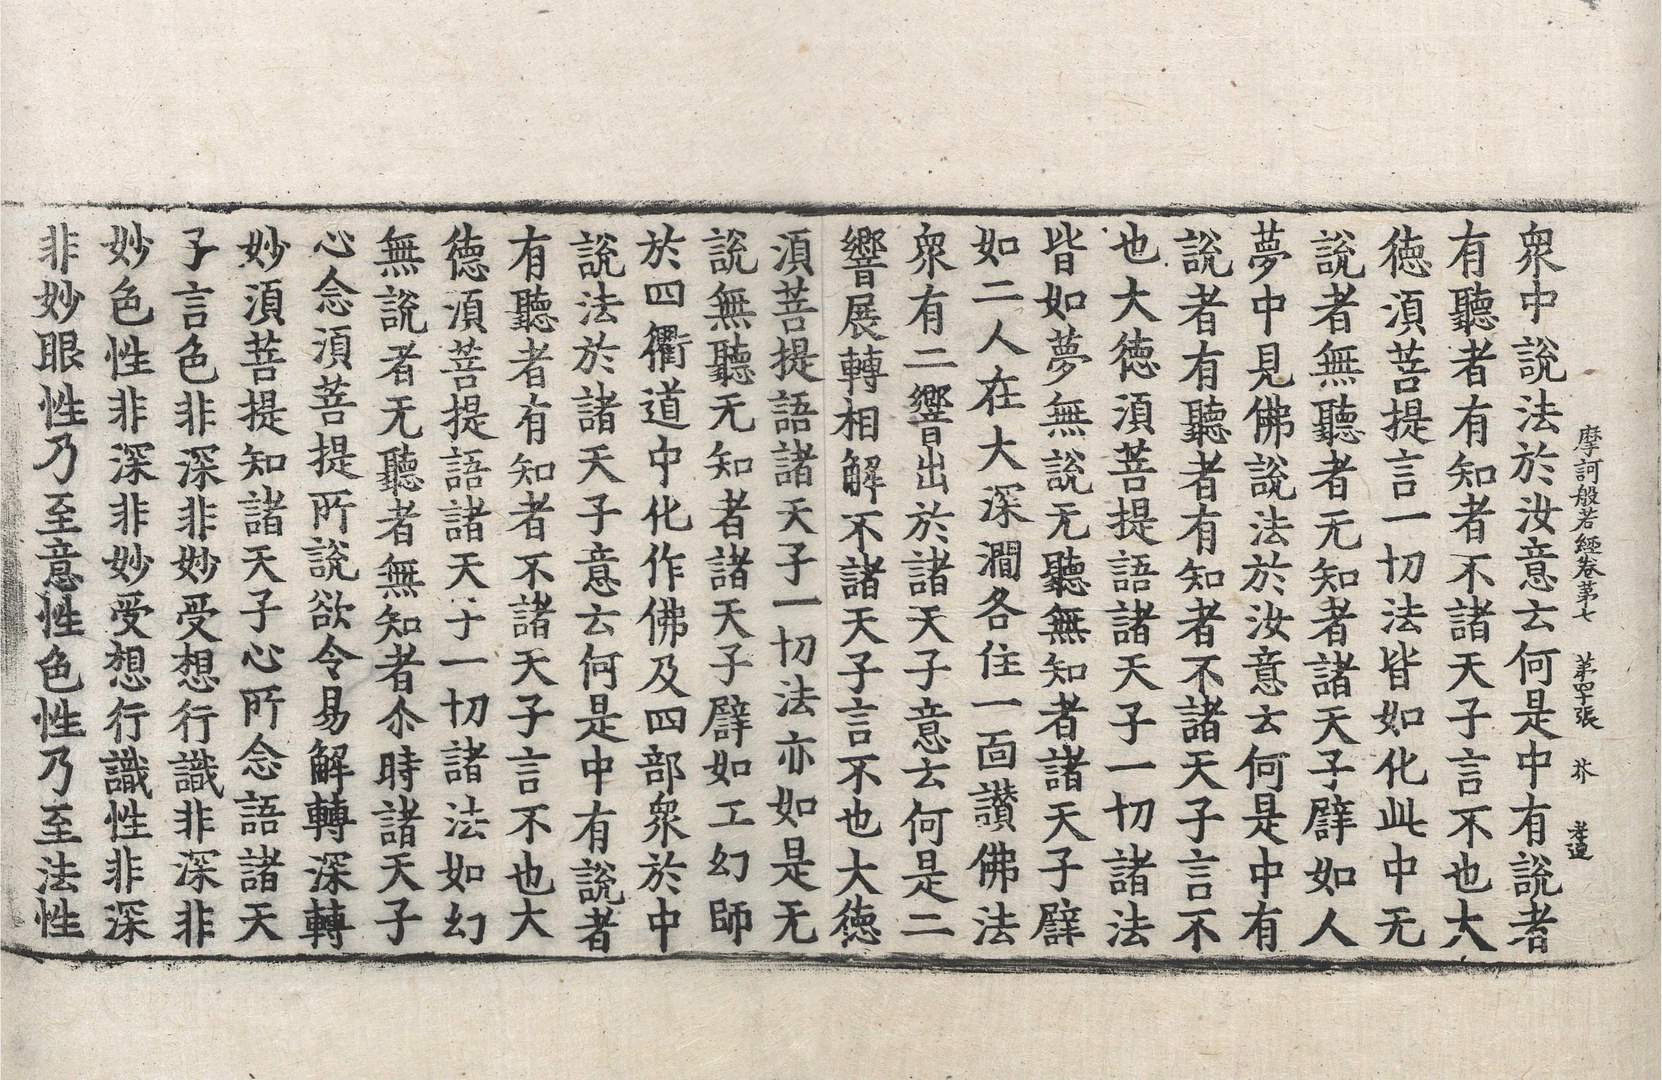 摩訶般若經卷第七　第四張　芥　孝道
衆中說法於汝意云何是中有說者
有聽者有知者不諸天子言不也大
徳湏菩提言一切法皆如化此中无
說者無聽者无知者諸天子譬如人
夢中見佛說法於汝意云何是中有
說者有聽者有知者不諸天子言不
也大徳湏菩提語諸天子一切諸法
皆如夢無說无聽無知者諸天子譬
如二人在大深澗各住一面讃佛法
衆有二響出於諸天子意云何是二
響展轉相解不諸天子言不也大徳
湏菩提語諸天子一切法亦如是无
說無聽无知者諸天子譬如工幻師
於四衢道中化作佛及四部衆於中
說法於諸天子意云何是中有說者
有聽者有知者不諸天子言不也大
徳湏菩提語諸天子一切諸法如幻
無說者无聽者無知者尒時諸天子
心念湏菩提所說欲令易解轉深轉
妙湏菩提知諸天子心所念語諸天
子言色非深非妙受想行識非深非
妙色性非深非妙受想行識性非深
非妙眼性乃至意性色性乃至法性